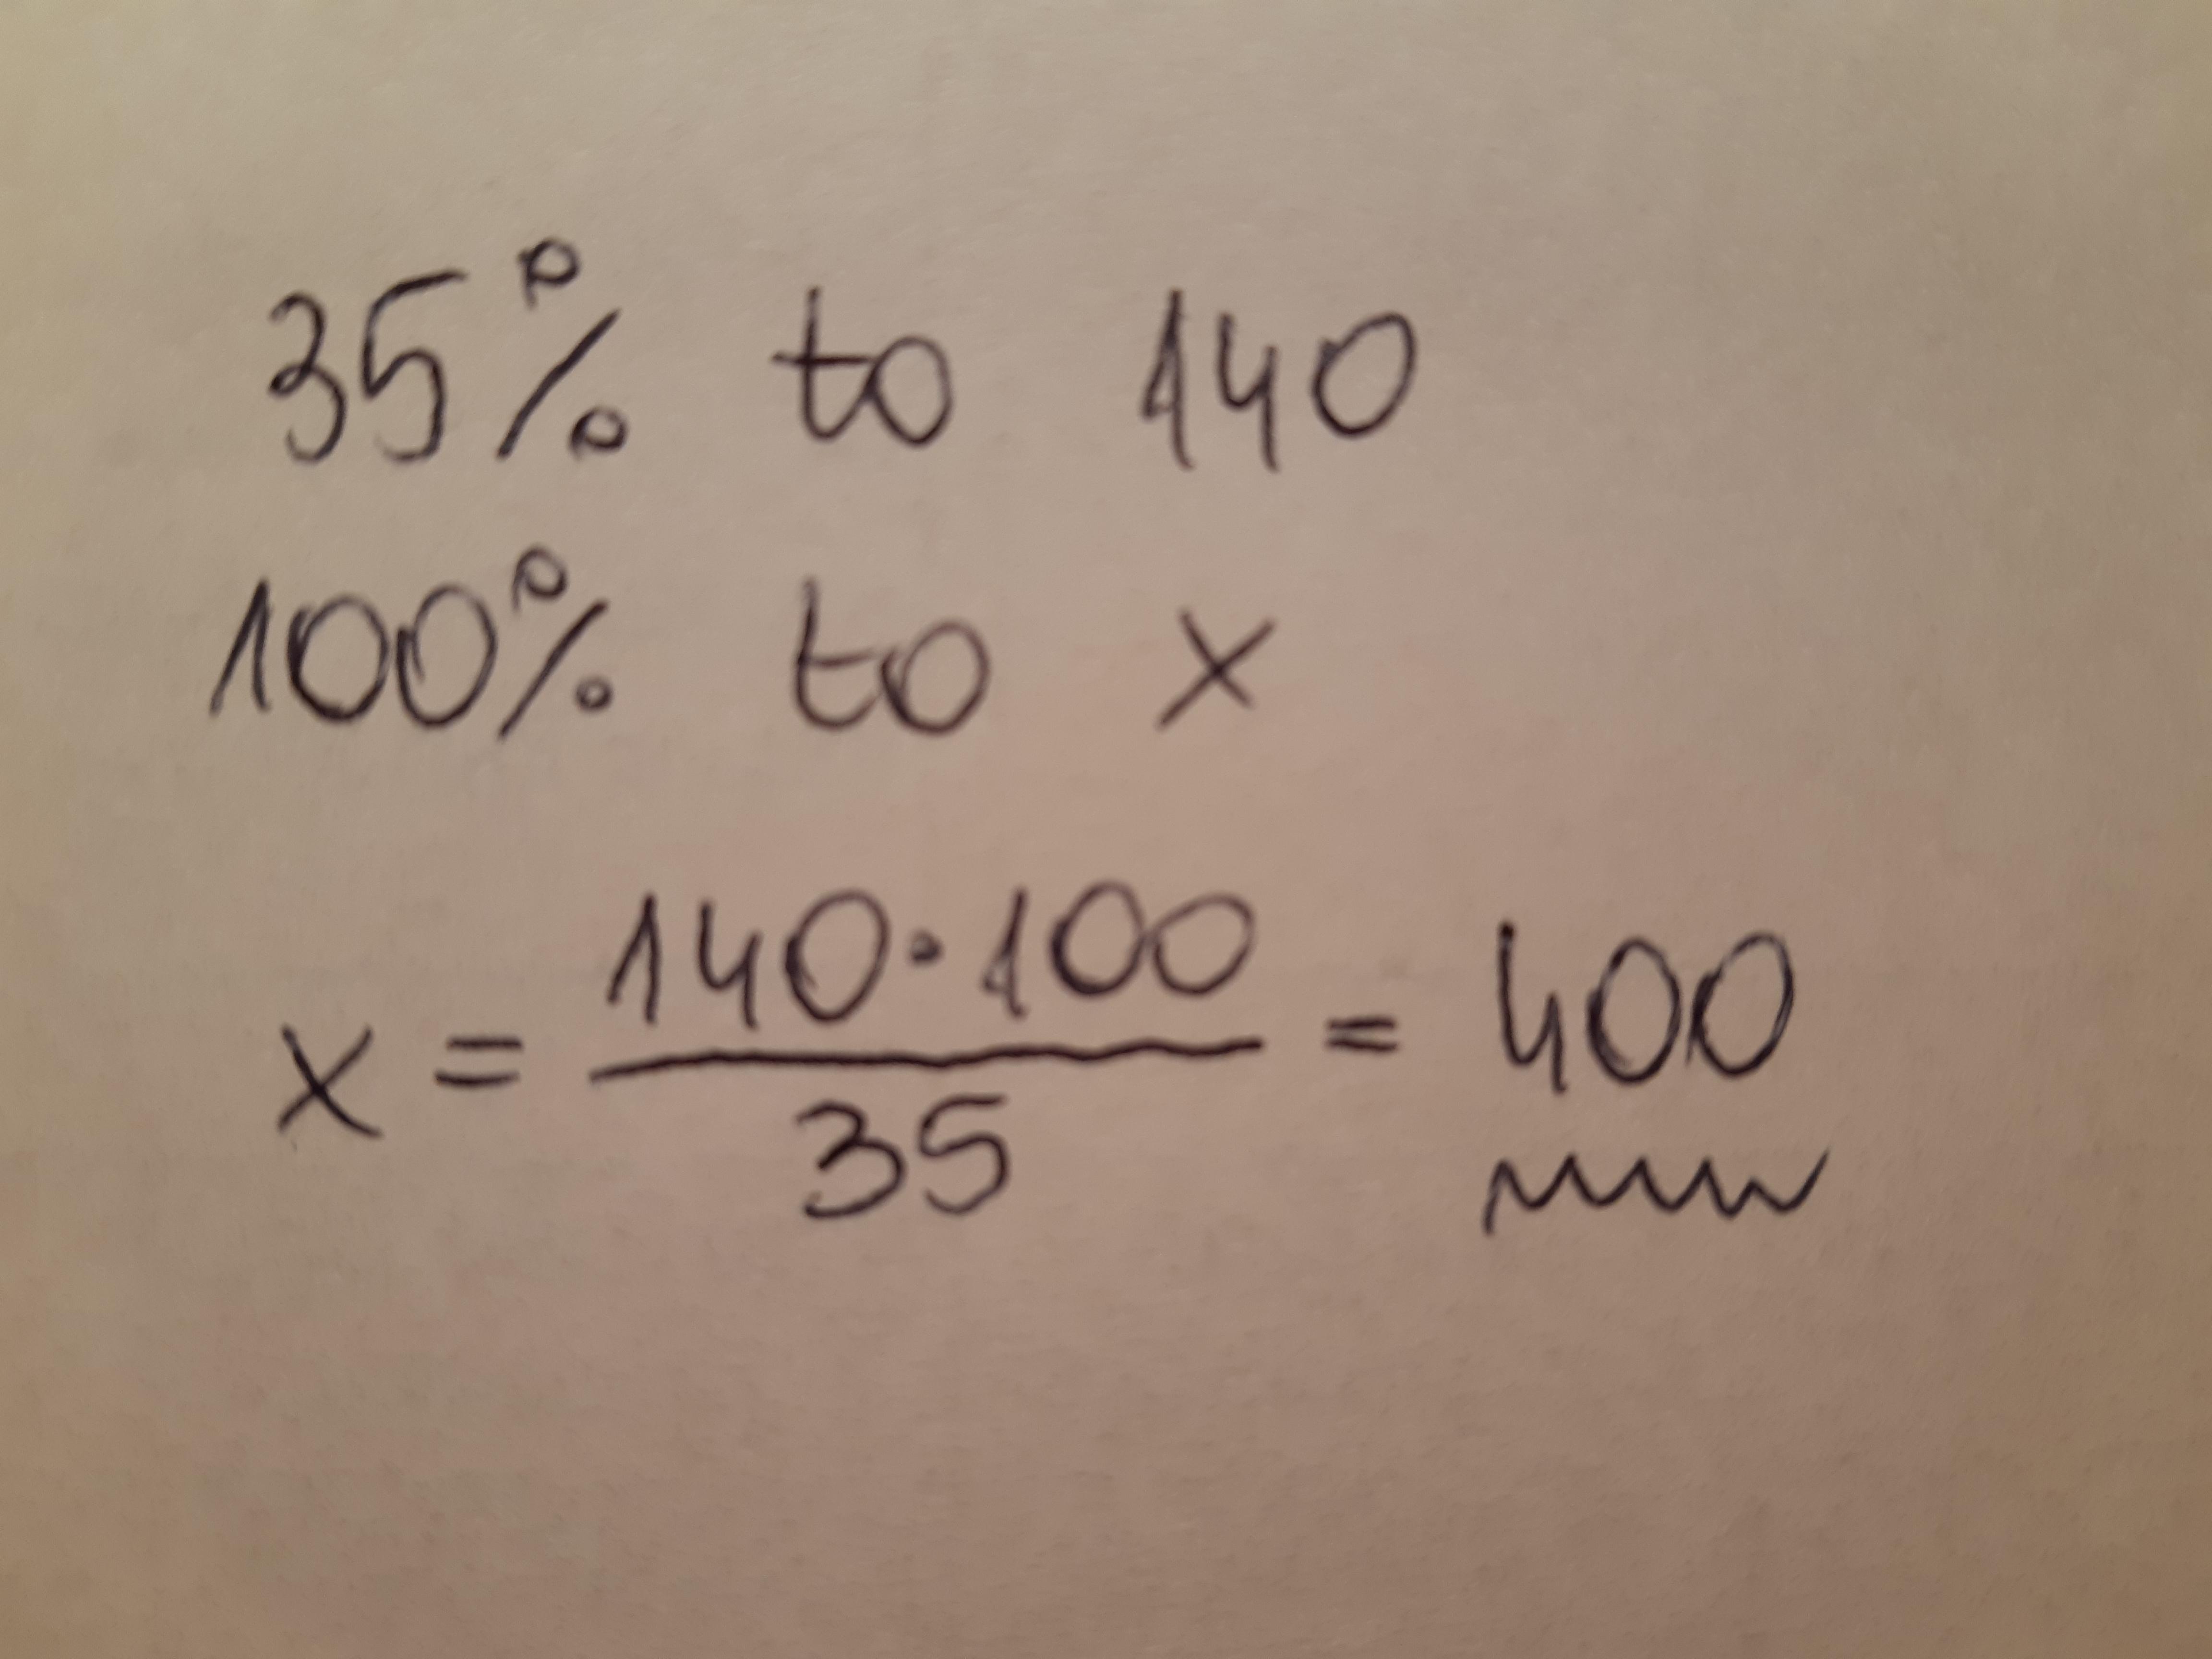 35% to 140
100% to x
x = 140·100 / 35 = 400